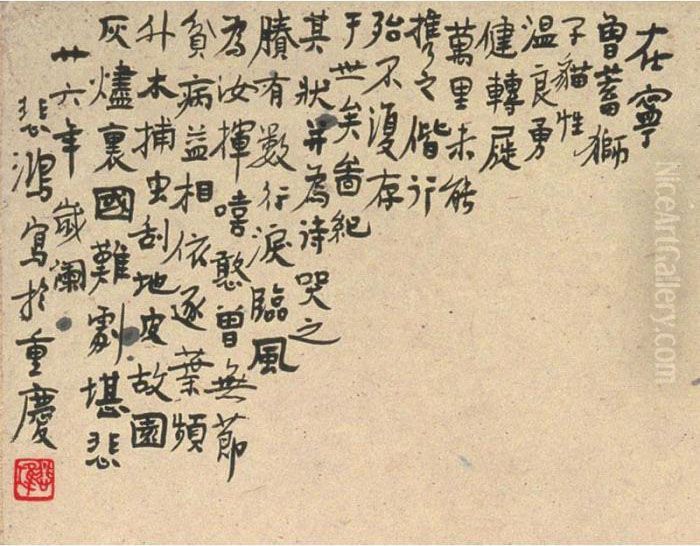 在寧
曾蓄獅
子貓性
溫良勇
健轉展
萬里未能
攜之偕行
殆不復存
于世矣啚紀
其狀并為诗哭之
賸有數行淚臨風
為汝揮嘻憨曾無節
貧病益相依逐葉頻
升木捕虫刮地皮故園
灰燼裏國難劇堪悲
廿六年歲阑
悲鴻寫於重慶
NiceArtGallery.com